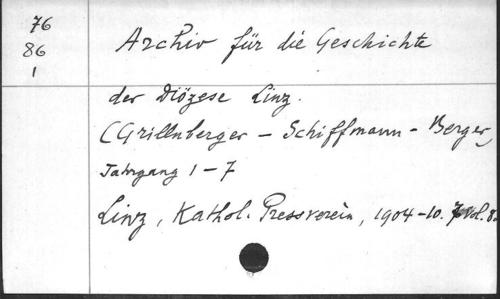 76
86
1
Archiv für die Geschichte
der Diözese Linz.
(Grillnberger – Schiffmann – Berger)
Jahrgang 1 – 7
Linz, Kathol. Pressverein, 1904–10. 7 Vol. 8.